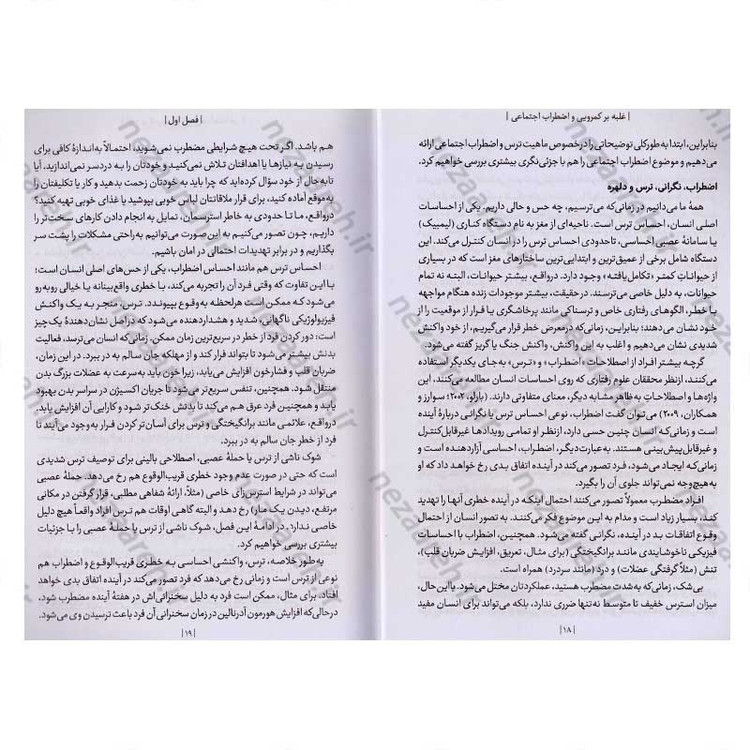 | غلبه بر کمرویی و اضطراب اجتماعی |
بنابراین، ابتدا به‌طورکلی توضیحاتی را درخصوص ماهیت ترس و اضطراب اجتماعی ارائه
می‌دهیم و موضوع اضطراب اجتماعی را هم با جزئی‌نگری بیشتری بررسی خواهیم کرد.
اضطراب، نگرانی، ترس و دلهره
همهٔ ما می‌دانیم در زمانی‌که می‌ترسیم، چه حس و حالی داریم. یکی از احساسات
اصلی انسان، احساس ترس است. ناحیه‌ای از مغز به نام دستگاه کناری (لیمبیک)
یا سامانهٔ عصبی احساسی، تاحدودی احساس ترس را در انسان کنترل می‌کند. این
دستگاه شامل برخی از عمیق‌ترین و ابتدایی‌ترین ساختارهای مغز است که در بسیاری
از حیوانات کمتر «تکامل‌یافته» وجود دارد. درواقع، بیشتر حیوانات، البته نه تمام
حیوانات، به دلیل خاصی می‌ترسند. درحقیقت، بیشتر موجودات زنده هنگام مواجهه
با خطر، الگوهای رفتاری خاص و ترسناکی مانند پرخاشگری یا فرار از موقعیت را از
خود نشان می‌دهند؛ بنابراین، زمانی‌که درمعرض خطر قرار می‌گیریم، از خود واکنش
شدیدی نشان می‌دهیم و اغلب به این واکنش، واکنش جنگ یا گریز گفته می‌شود.
گرچه بیشتر افراد از اصطلاحات «اضطراب» و «ترس» به‌جای یکدیگر استفاده
می‌کنند، ازنظر محققان علوم رفتاری که روی احساسات انسان مطالعه می‌کنند، این
واژه‌ها و اصطلاحاتِ به‌ظاهر مشابه دیگر، معنای متفاوتی دارند. (بارلو، ۲۰۰۲؛ سوارز و
همکاران، ۲۰۰۹) می‌توان گفت اضطراب، نوعی احساس ترس یا نگرانی دربارهٔ آینده
است و زمانی‌که انسان چنین حسی دارد، ازنظر او تمامی رویدادها غیرقابل‌کنترل
و غیرقابل‌پیش‌بینی هستند. به‌عبارت‌دیگر، اضطراب، احساسی آزاردهنده است و
زمانی‌که ایجاد می‌شود، فرد تصور می‌کند در آینده اتفاق بدی رخ خواهد داد که او
به‌هیچ‌وجه نمی‌تواند جلوی آن را بگیرد.
افراد مضطرب معمولاً تصور می‌کنند احتمال اینکه در آینده خطری آنها را تهدید
کند، بسیار زیاد است و مدام به این موضوع فکر می‌کنند. به تصور انسان از احتمال
وقوع اتفاقات بد در آینده، نگرانی گفته می‌شود. همچنین، اضطراب با احساسات
فیزیکی ناخوشایندی مانند برانگیختگی (برای مثال، تعریق، افزایش ضربان قلب)،
تنش (مثلاً گرفتگی عضلات) و درد (مانند سردرد) همراه است.
بی‌شک، زمانی‌که به‌شدت مضطرب هستید، عملکردتان مختل می‌شود. بااین‌حال،
میزان استرس خفیف تا متوسط نه‌تنها ضرری ندارد، بلکه می‌تواند برای انسان مفید
| ۱۸ |
| فصل اول |
هم باشد. اگر تحت هیچ شرایطی مضطرب نمی‌شوید، احتمالاً به‌اندازهٔ کافی برای
رسیدن به نیازها یا اهدافتان تلاش نمی‌کنید و خودتان را به دردسر نمی‌اندازید. آیا
تابه‌حال از خود سؤال کرده‌اید که چرا باید به خودتان زحمت بدهید و کار یا تکلیفتان را
به‌موقع آماده کنید، برای قرار ملاقاتتان لباس خوبی بپوشید یا غذای خوبی تهیه کنید؟
درواقع، ما تا حدودی به خاطر استرسمان، تمایل به انجام دادن کارهای سخت‌تر را
داریم، چون تصور می‌کنیم به این صورت می‌توانیم به‌راحتی مشکلات را پشت سر
بگذاریم و در برابر تهدیدات احتمالی در امان باشیم.
احساس ترس هم مانند احساس اضطراب، یکی از حس‌های اصلی انسان است؛
با این تفاوت که وقتی فرد آن را تجربه می‌کند، با خطری واقع‌بینانه یا خیالی روبه‌رو
می‌شود که ممکن است هرلحظه به‌وقوع بپیوندد. ترس، منجر به یک واکنش
فیزیولوژیکی ناگهانی، شدید و هشداردهنده می‌شود که دراصل نشان‌دهندهٔ یک چیز
است: دور کردن فرد از خطر در سریع‌ترین زمان ممکن. زمانی‌که انسان می‌ترسد، فعالیت
بدنش بیشتر می‌شود تا بتواند فرار کند و از مهلکه جان سالم به در ببرد. در این زمان،
ضربان قلب و فشارخون افزایش می‌یابد، زیرا خون باید به‌سرعت به عضلات بزرگ بدن
منتقل شود. همچنین، تنفس سریع‌تر می‌شود تا جریان اکسیژن در سراسر بدن بهبود
یابد و همچنین فرد عرق هم می‌کند تا بدنش خنک‌تر شود و کارایی آن افزایش یابد.
درواقع، علائمی مانند برانگیختگی و ترس برای آسان‌تر کردن فرار به‌وجود می‌آیند تا
فرد از خطر جان سالم به در ببرد.
شوک ناشی از ترس یا حملهٔ عصبی، اصطلاحی بالینی برای توصیف ترس شدیدی
است که حتی در صورت عدم وجود خطری قریب‌الوقوع هم رخ می‌دهد. حملهٔ عصبی
می‌تواند در شرایط استرس‌زای خاصی (مثلاً ارائهٔ شفاهی مطلبی، قرار گرفتن در مکانی
مرتفع، دیدن یک مار) رخ دهد و البته گاهی اوقات هم ترس افراد واقعاً هیچ دلیل
خاصی ندارد. در ادامهٔ این فصل، شوک ناشی از ترس یا حملهٔ عصبی را با جزئیات
بیشتری بررسی خواهیم کرد.
به‌طور خلاصه، ترس، واکنشی احساسی به خطری قریب‌الوقوع و اضطراب هم
نوعی از ترس است و زمانی رخ می‌دهد که فرد تصور می‌کند در آینده اتفاق بدی خواهد
افتاد. برای مثال، ممکن است فرد به دلیل سخنرانی‌اش در هفتهٔ آینده مضطرب شود،
درحالی‌که افزایش هورمون آدرنالین در زمان سخنرانی آن فرد باعث ترسیدن وی می‌شود.
| ۱۹ |
nezamieh.ir